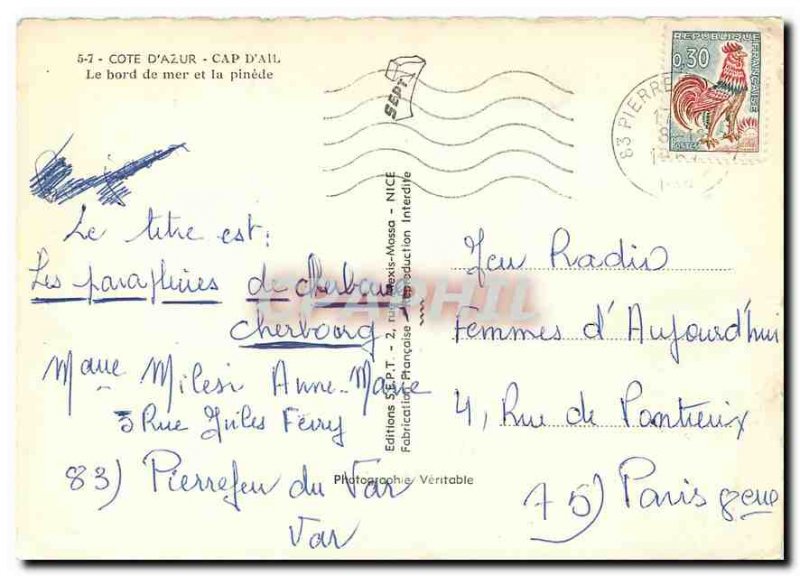 5-7 - COTE D'AZUR - CAP D'AIL
Le bord de mer et la pinède
SEPT
REPUBLIQUE FRANÇAISE
0,30
POSTES
83 PIERRE
Le titre est:
Les parapluies de cherbourg
cherbourg
Mme Milesi Anne-Marie
3 Rue Jules Ferry
83) Pierrefeu du Var
Var
Editions S.E.P.T. - 2, rue Alexis-Mossa - NICE
Fabrication Française - Reproduction Interdite
Photographie Véritable
CPAPHIL
Jeu Radio
Femmes d'Aujourd'hui
4, Rue de Ponthieux
75) Paris 8eme